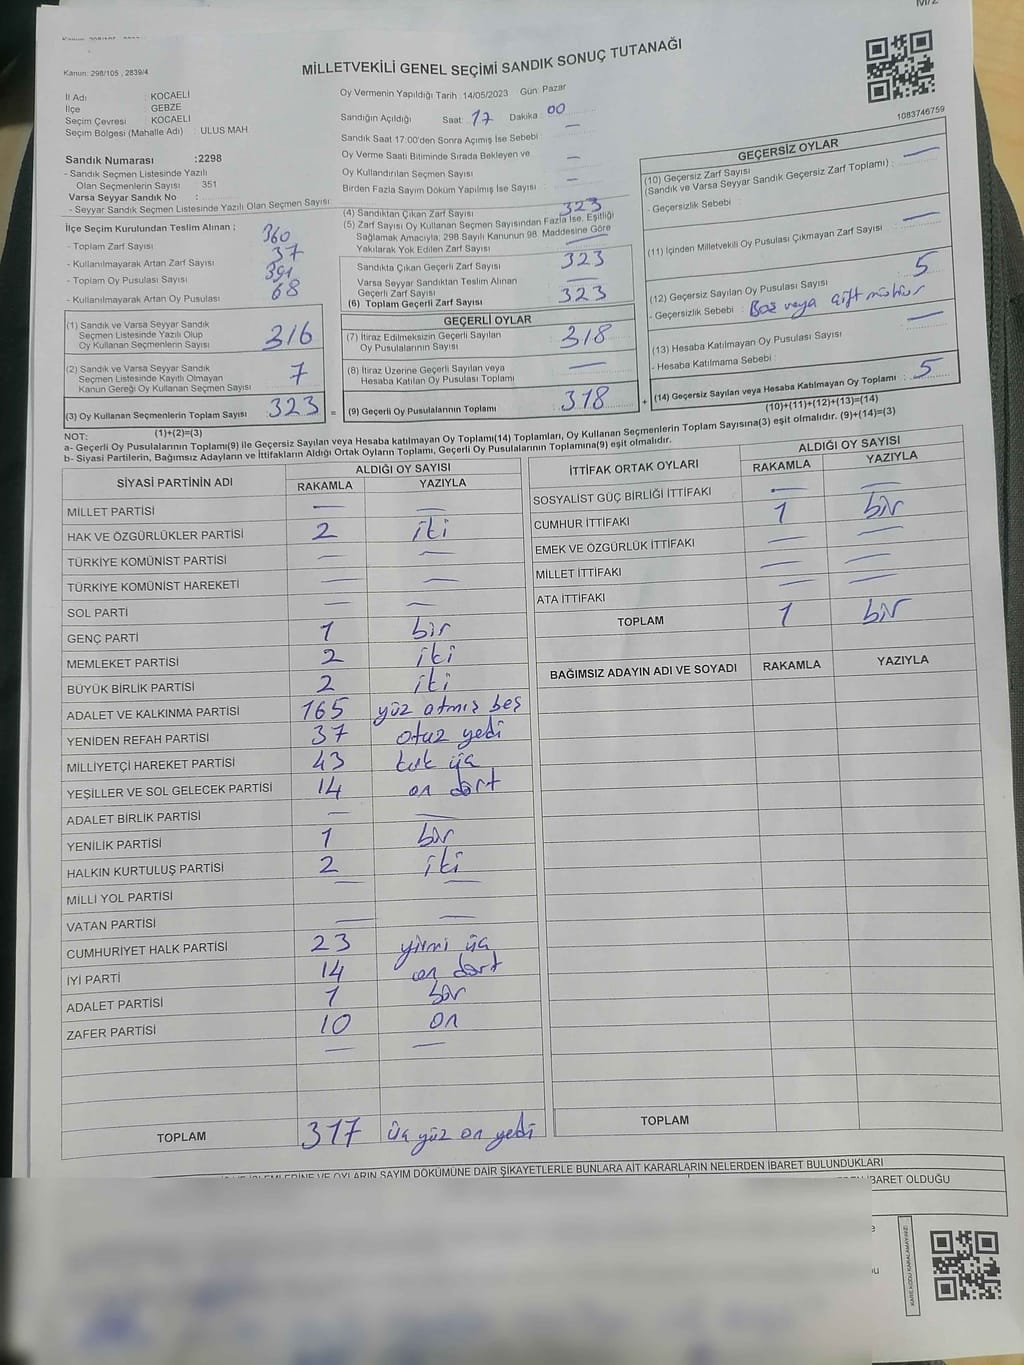 M/2
Kanun: 298/105 , 2839/4
MİLLETVEKİLİ GENEL SEÇİMİ SANDIK SONUÇ TUTANAĞI
1083746759
İl Adı : KOCAELİ
İlçe : GEBZE
Seçim Çevresi : KOCAELİ
Seçim Bölgesi (Mahalle Adı) : ULUS MAH
Sandık Numarası :2298
- Sandık Seçmen Listesinde Yazılı
Olan Seçmenlerin Sayısı : 351
Varsa Seyyar Sandık No :
- Seyyar Sandık Seçmen Listesinde Yazılı Olan Seçmen Sayısı:
İlçe Seçim Kurulundan Teslim Alınan ;
- Toplam Zarf Sayısı : 360
- Kullanılmayarak Artan Zarf Sayısı : 37
- Toplam Oy Pusulası Sayısı : 391
- Kullanılmayarak Artan Oy Pusulası : 68
(1) Sandık ve Varsa Seyyar Sandık
Seçmen Listesinde Yazılı Olup
Oy Kullanan Seçmenlerin Sayısı : 316
(2) Sandık ve Varsa Seyyar Sandık
Seçmen Listesinde Kayıtlı Olmayan
Kanun Gereği Oy Kullanan Seçmen Sayısı : 7
(3) Oy Kullanan Seçmenlerin Toplam Sayısı : 323 =
(1)+(2)=(3)
Oy Vermenin Yapıldığı Tarih :14/05/2023 Gün: Pazar
Sandığın Açıldığı Saat: 17 Dakika : 00
Sandık Saat 17:00'den Sonra Açımış İse Sebebi : —
Oy Verme Saati Bitiminde Sırada Bekleyen ve
Oy Kullandırılan Seçmen Sayısı : —
Birden Fazla Sayım Döküm Yapılmış İse Sayısı : —
(4) Sandıktan Çıkan Zarf Sayısı : 323
(5) Zarf Sayısı Oy Kullanan Seçmen Sayısından Fazla İse, Eşitliği
Sağlamak Amacıyla, 298 Sayılı Kanunun 98. Maddesine Göre
Yakılarak Yok Edilen Zarf Sayısı : —
Sandıkta Çıkan Geçerli Zarf Sayısı : 323
Varsa Seyyar Sandıktan Teslim Alınan
Geçerli Zarf Sayısı : —
(6) Toplam Geçerli Zarf Sayısı : 323
GEÇERLİ OYLAR
(7) İtiraz Edilmeksizin Geçerli Sayılan
Oy Pusulalarının Sayısı : 318
(8) İtiraz Üzerine Geçerli Sayılan veya
Hesaba Katılan Oy Pusulası Toplamı : —
(9) Geçerli Oy Pusulalarının Toplamı : 318 +
GEÇERSİZ OYLAR
(10) Geçersiz Zarf Sayısı
(Sandık ve Varsa Seyyar Sandık Geçersiz Zarf Toplamı) : —
- Geçersizlik Sebebi :
(11) İçinden Milletvekili Oy Pusulası Çıkmayan Zarf Sayısı : —
(12) Geçersiz Sayılan Oy Pusulası Sayısı : 5
- Geçersizlik Sebebi : Boş veya çift mühür
(13) Hesaba Katılmayan Oy Pusulası Sayısı : —
- Hesaba Katılmama Sebebi :
(14) Geçersiz Sayılan veya Hesaba Katılmayan Oy Toplamı : 5
(10)+(11)+(12)+(13)=(14)
NOT:
a- Geçerli Oy Pusulalarının Toplamı(9) ile Geçersiz Sayılan veya Hesaba katılmayan Oy Toplamı(14) Toplamları, Oy Kullanan Seçmenlerin Toplam Sayısına(3) eşit olmalıdır. (9)+(14)=(3)
b- Siyasi Partilerin, Bağımsız Adayların ve İttifakların Aldığı Ortak Oyların Toplamı, Geçerli Oy Pusulalarının Toplamına(9) eşit olmalıdır.
SİYASİ PARTİNİN ADI ALDIĞI OY SAYISI
RAKAMLA YAZIYLA
MİLLET PARTİSİ — —
HAK VE ÖZGÜRLÜKLER PARTİSİ 2 iki
TÜRKİYE KOMÜNİST PARTİSİ — —
TÜRKİYE KOMÜNİST HAREKETİ — —
SOL PARTİ — —
GENÇ PARTİ 1 bir
MEMLEKET PARTİSİ 2 iki
BÜYÜK BİRLİK PARTİSİ 2 iki
ADALET VE KALKINMA PARTİSİ 165 yüz atmış beş
YENİDEN REFAH PARTİSİ 37 otuz yedi
MİLLİYETÇİ HAREKET PARTİSİ 43 kırk üç
YEŞİLLER VE SOL GELECEK PARTİSİ 14 on dört
ADALET BİRLİK PARTİSİ — —
YENİLİK PARTİSİ 1 bir
HALKIN KURTULUŞ PARTİSİ 2 iki
MİLLİ YOL PARTİSİ — —
VATAN PARTİSİ — —
CUMHURİYET HALK PARTİSİ 23 yirmi üç
İYİ PARTİ 14 on dört
ADALET PARTİSİ 1 bir
ZAFER PARTİSİ 10 on
— —
TOPLAM 317 üç yüz on yedi
İTTİFAK ORTAK OYLARI ALDIĞI OY SAYISI
RAKAMLA YAZIYLA
SOSYALİST GÜÇ BİRLİĞİ İTTİFAKI — —
CUMHUR İTTİFAKI 1 bir
EMEK VE ÖZGÜRLÜK İTTİFAKI — —
MİLLET İTTİFAKI — —
ATA İTTİFAKI — —
TOPLAM 1 bir
BAĞIMSIZ ADAYIN ADI VE SOYADI RAKAMLA YAZIYLA
TOPLAM
OYLARIN SAYIM DÖKÜMÜNE DAİR ŞİKAYETLERLE BUNLARA AİT KARARLARIN NELERDEN İBARET BULUNDUKLARI
İBARET OLDUĞU
KARE KODU KARALAMAYINIZ!